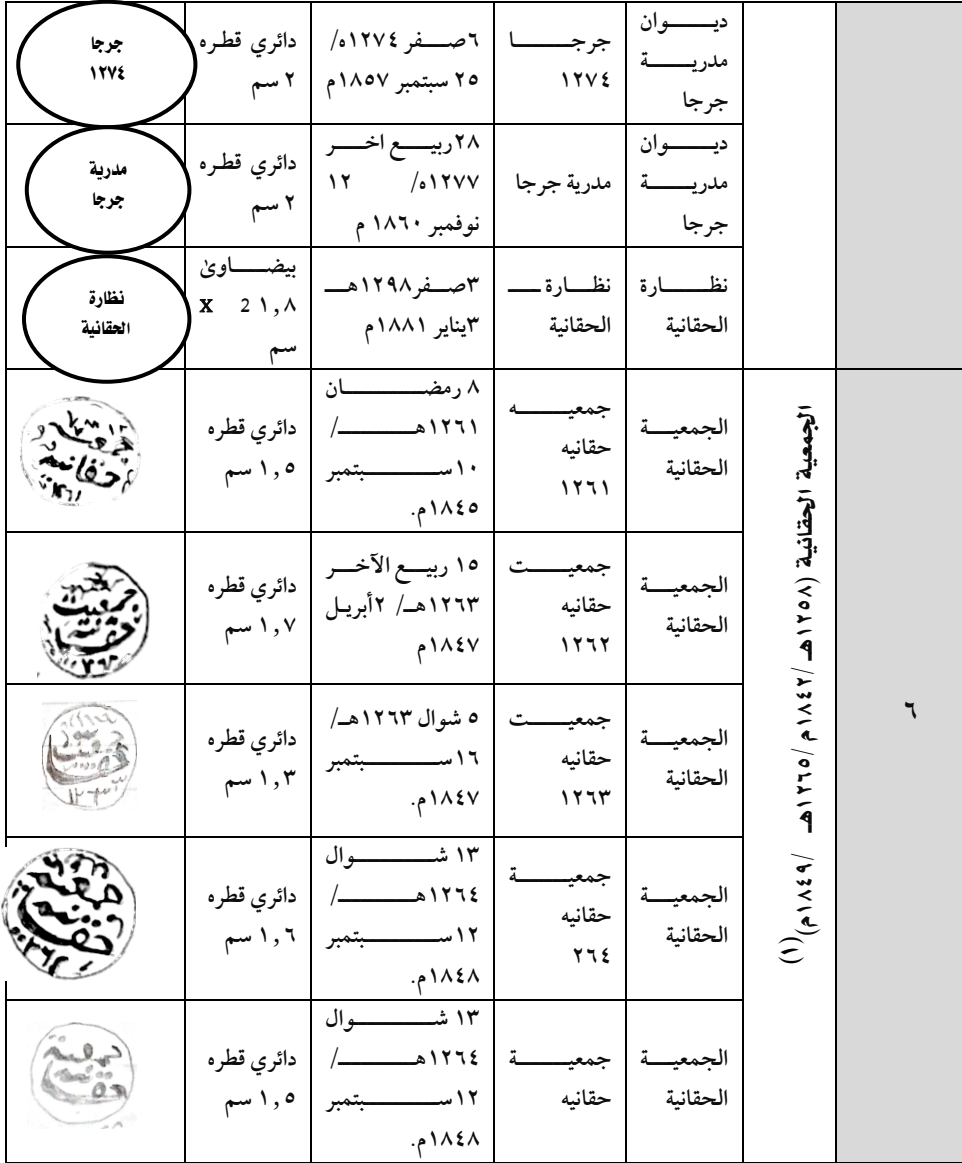 ديوان
مدرية
جرجا
جرجا
١٢٧٤
٦صفر ١٢٧٤ه/
٢٥ سبتمبر ١٨٥٧م
دائري قطره
٢ سم
جرجا
١٢٧٤
ديوان
مدرية
جرجا
مدرية جرجا
٢٨ربيع اخر
١٢٧٧ه/ ١٢
نوفمبر ١٨٦٠ م
دائري قطره
٢ سم
مدرية
جرجا
نظارة
الحقانية
نظارة
الحقانية
٣صفر١٢٩٨هـ
٣يناير ١٨٨١م
بيضاوى
١,٨ X 2
سم
نظارة
الحقانية
٦
الجمعية الحقانية (١٢٥٨هـ /١٨٤٢م /١٢٦٥هـ /١٨٤٩م)(١)
الجمعية
الحقانية
جمعيه
حقانيه
١٢٦١
٨ رمضان
١٢٦١هـ/
١٠سبتمبر
١٨٤٥م.
دائري قطره
١,٥ سم
الجمعية
الحقانية
جمعيت
حقانيه
١٢٦٢
١٥ ربيع الآخر
١٢٦٣هـ/ ٢أبريل
١٨٤٧م
دائري قطره
١,٧ سم
الجمعية
الحقانية
جمعيت
حقانيه
١٢٦٣
٥ شوال ١٢٦٣هـ/
١٦سبتمبر
١٨٤٧م.
دائري قطره
١,٣ سم
الجمعية
الحقانية
جمعية
حقانيه
٢٦٤
١٣ شوال
١٢٦٤هـ/
١٢سبتمبر
١٨٤٨م.
دائري قطره
١,٦ سم
الجمعية
الحقانية
جمعية
حقانيه
١٣ شوال
١٢٦٤هـ/
١٢سبتمبر
١٨٤٨م.
دائري قطره
١,٥ سم